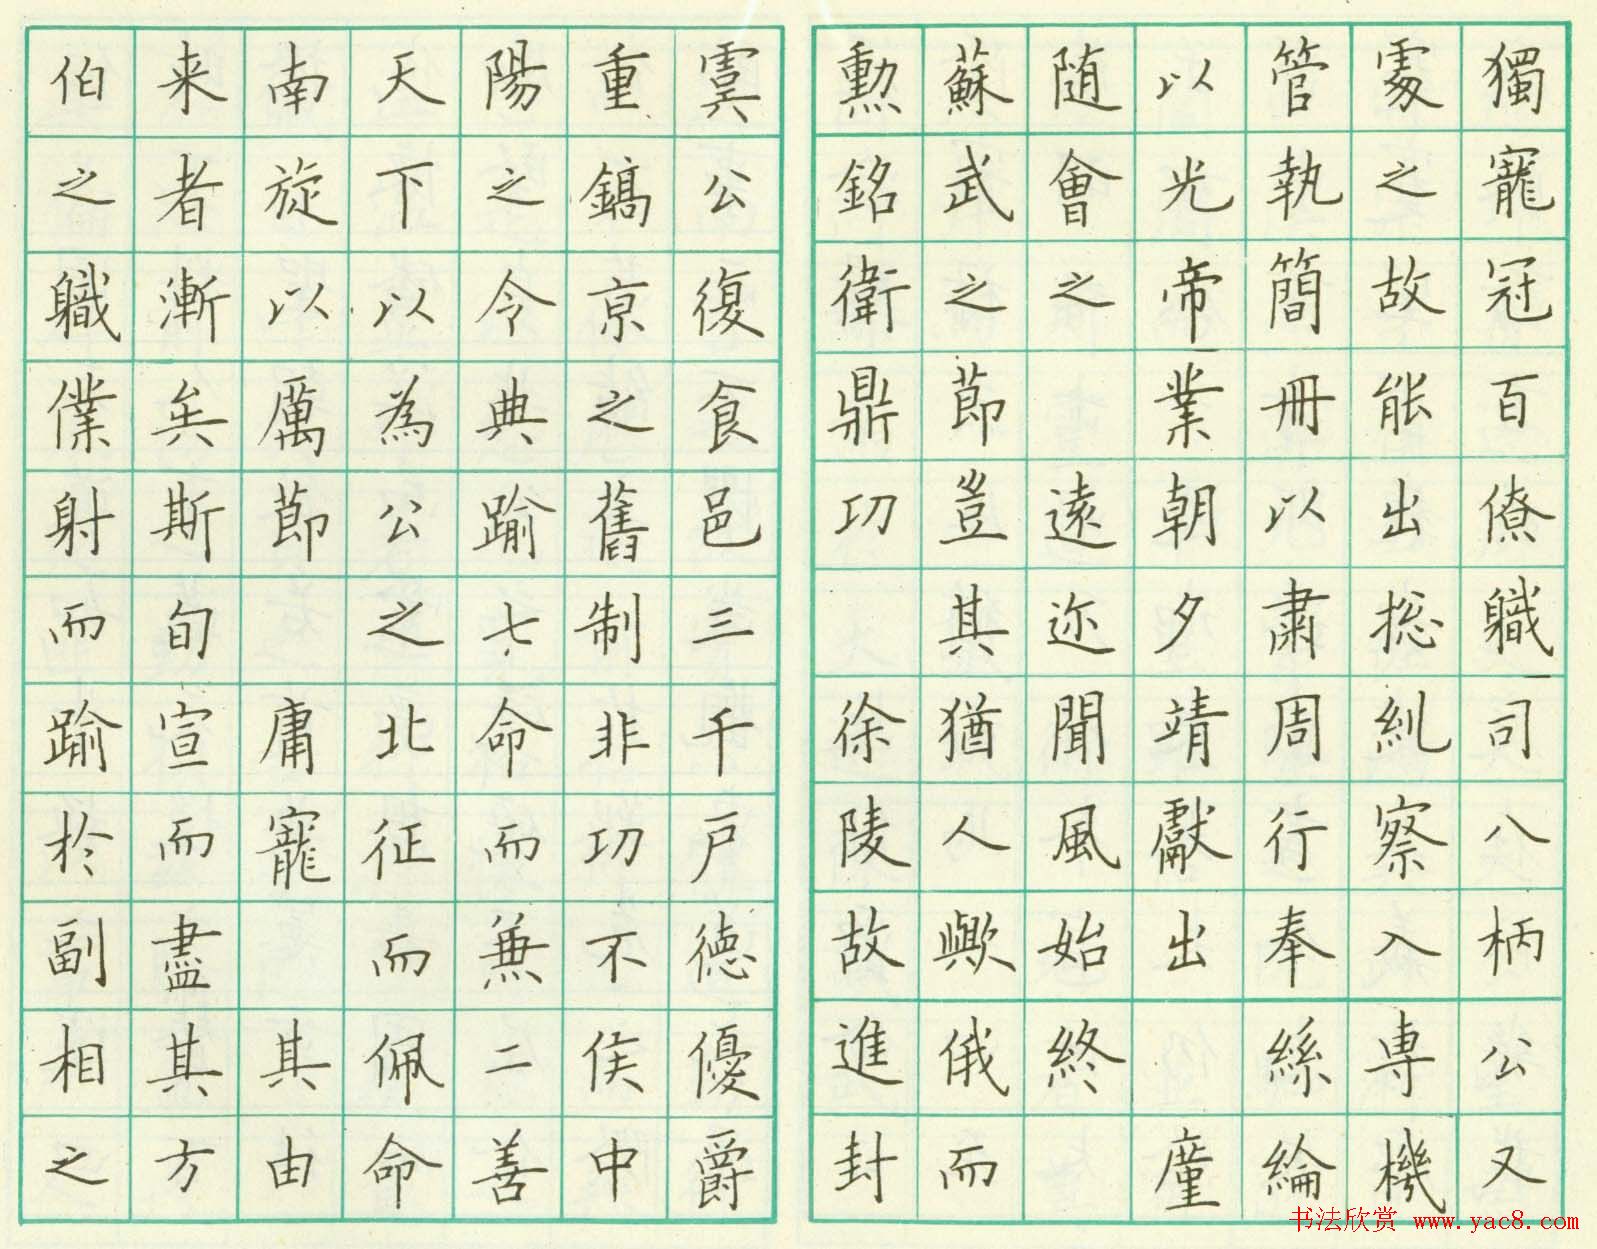 獨寵冠百僚職司八柄公又
䖏之故能出捴糺察入専機
管執簡冊以肅周行奉絲綸
以光帝業朝夕靖獻出
随會之遠迩聞風始終
蘇武之莭豈其猶人歟俄而
勲銘衛鼎功徐陵故進封
虞公復食邑三千户徳優爵
重鎬亰之舊制非功不侯中
陽之令典踰七命而兼二善
天下以為公之北征而佩命
南旋以厲莭庸寵其由
来者漸矣斯旬宣而盡其方
伯之職僕射而踰於副相之
书法欣赏 www.yac8.com